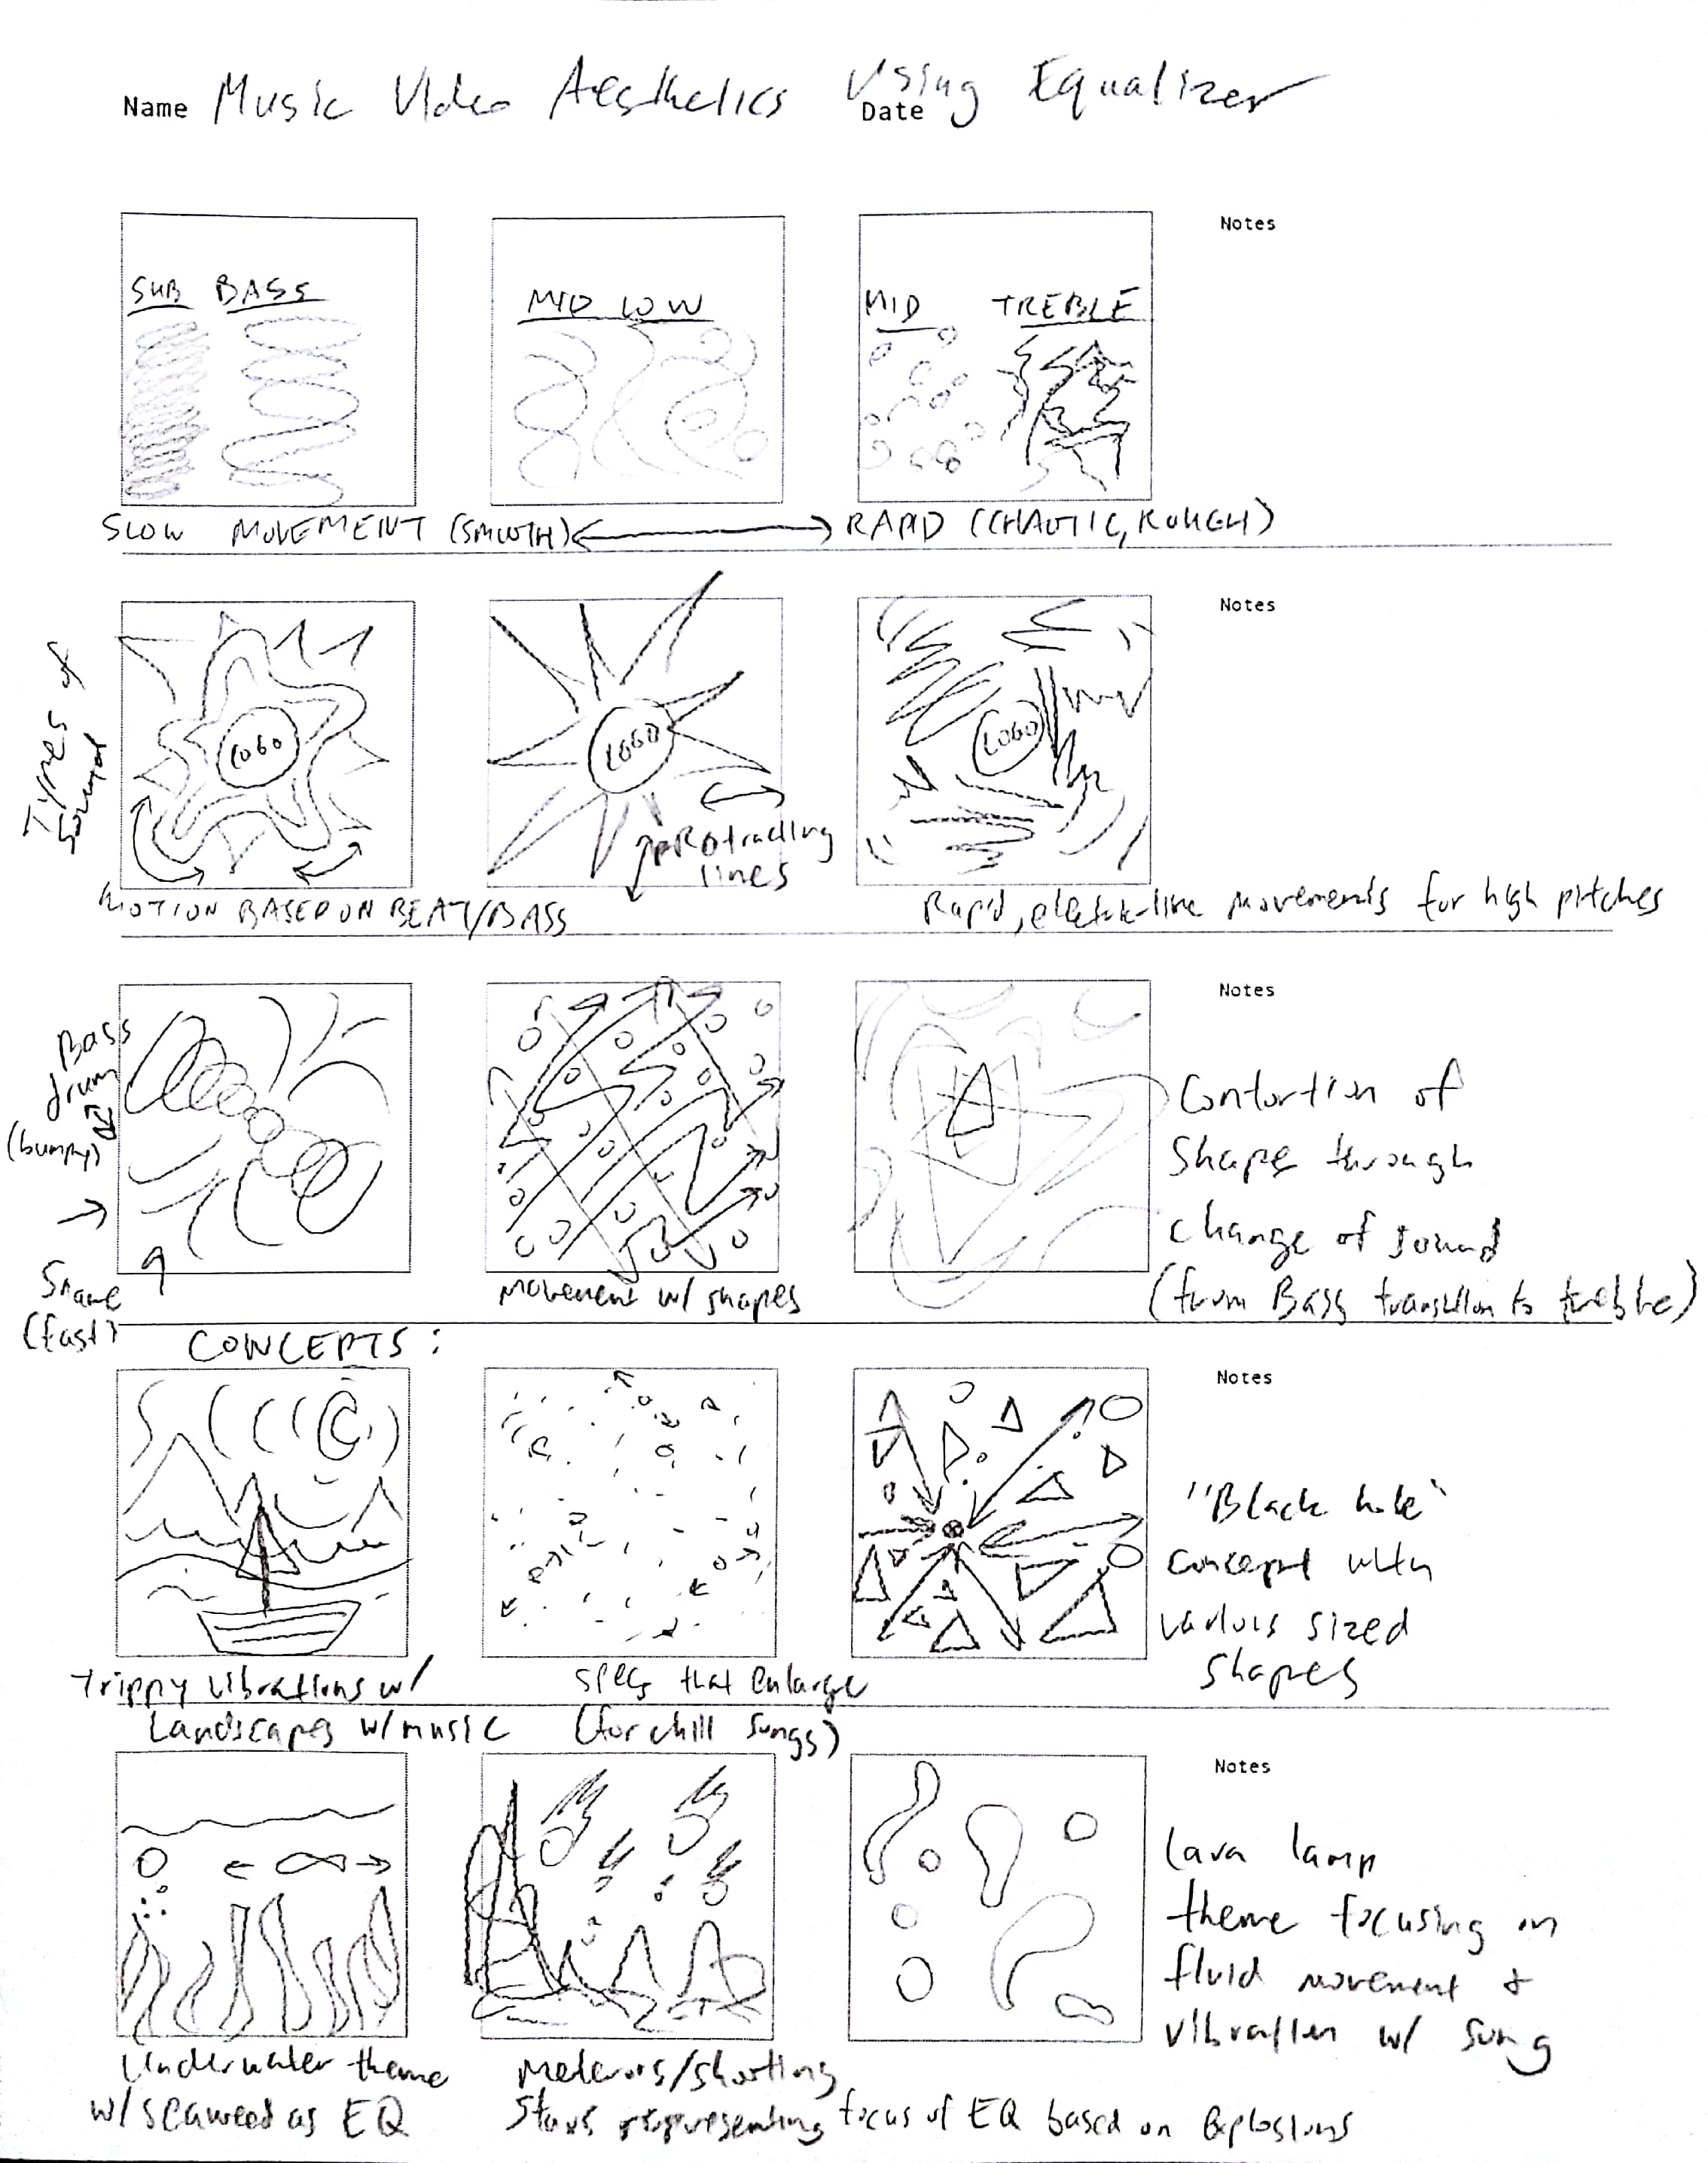 Name Music Video Aesthetics Using Equalizer
Date
Notes
SUB BASS
MID LOW
MID TREBLE
SLOW MOVEMENT (SMOOTH) ⟷ RAPID (CHAOTIC, ROUGH)
Notes
Types of
Sound
LOGO
LOGO
LOGO
PROtrading
lines
MOTION BASED ON BEAT/BASS
Rapid, movements for high pitches
Notes
Bass
drum
(bumpy)
Snare
(fast)
Movement w/ shapes
Contortion of
Shape through
change of sound
(from Bass transition to treble)
CONCEPTS:
Notes
Trippy vibrations w/
Landscapes w/ music
Specs that enlarge
(for chill songs)
"Black hole"
concept with
various sized
shapes
Notes
Underwater theme
w/ seaweed as EQ
Meteors/shooting
Stars representing focus of EQ based on Explosions
Lava lamp
theme focusing on
fluid movement &
vibration w/ song